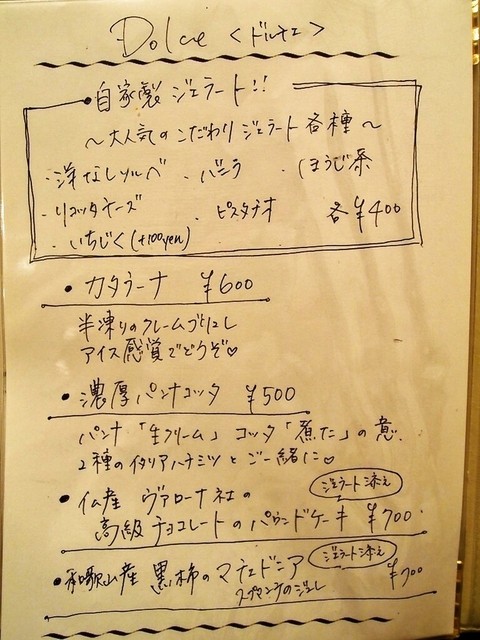 Dolce <ドルチェ>
・自家製 ジェラート!!
～大人気の こだわり ジェラート 各種～
・洋なしソルベ ・バニラ ・ほうじ茶
・リコッタチーズ ・ピスタチオ 各¥400
・いちじく(+100yen)
・カタラーナ ¥600
半凍りのクレームブリュレ
アイス感覚でどうぞ♡
・濃厚パンナコッタ ¥500
パンナ「生クリーム」コッタ「煮た」の意.
2種のイタリアハチミツとご一緒に♡
・仏産 ヴァローナ社の ジェラート添え
高級チョコレートのパウンドケーキ ¥700
・和歌山産 黒柿のマチェドニア ジェラート添え
スプマンテのジュレ ¥700